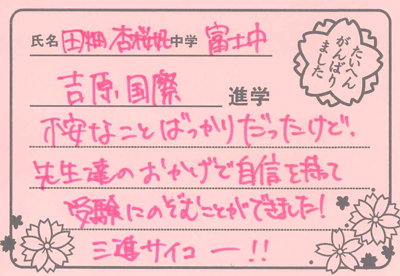 氏名 田畑 杏桜妃 中学 富士中
たいへん
がんばり
ました
吉原国際 進学
不安なことばっかりだったけど、
先生達のおかげで自信を持って
受験にのぞむことができました!
三進サイコー!!